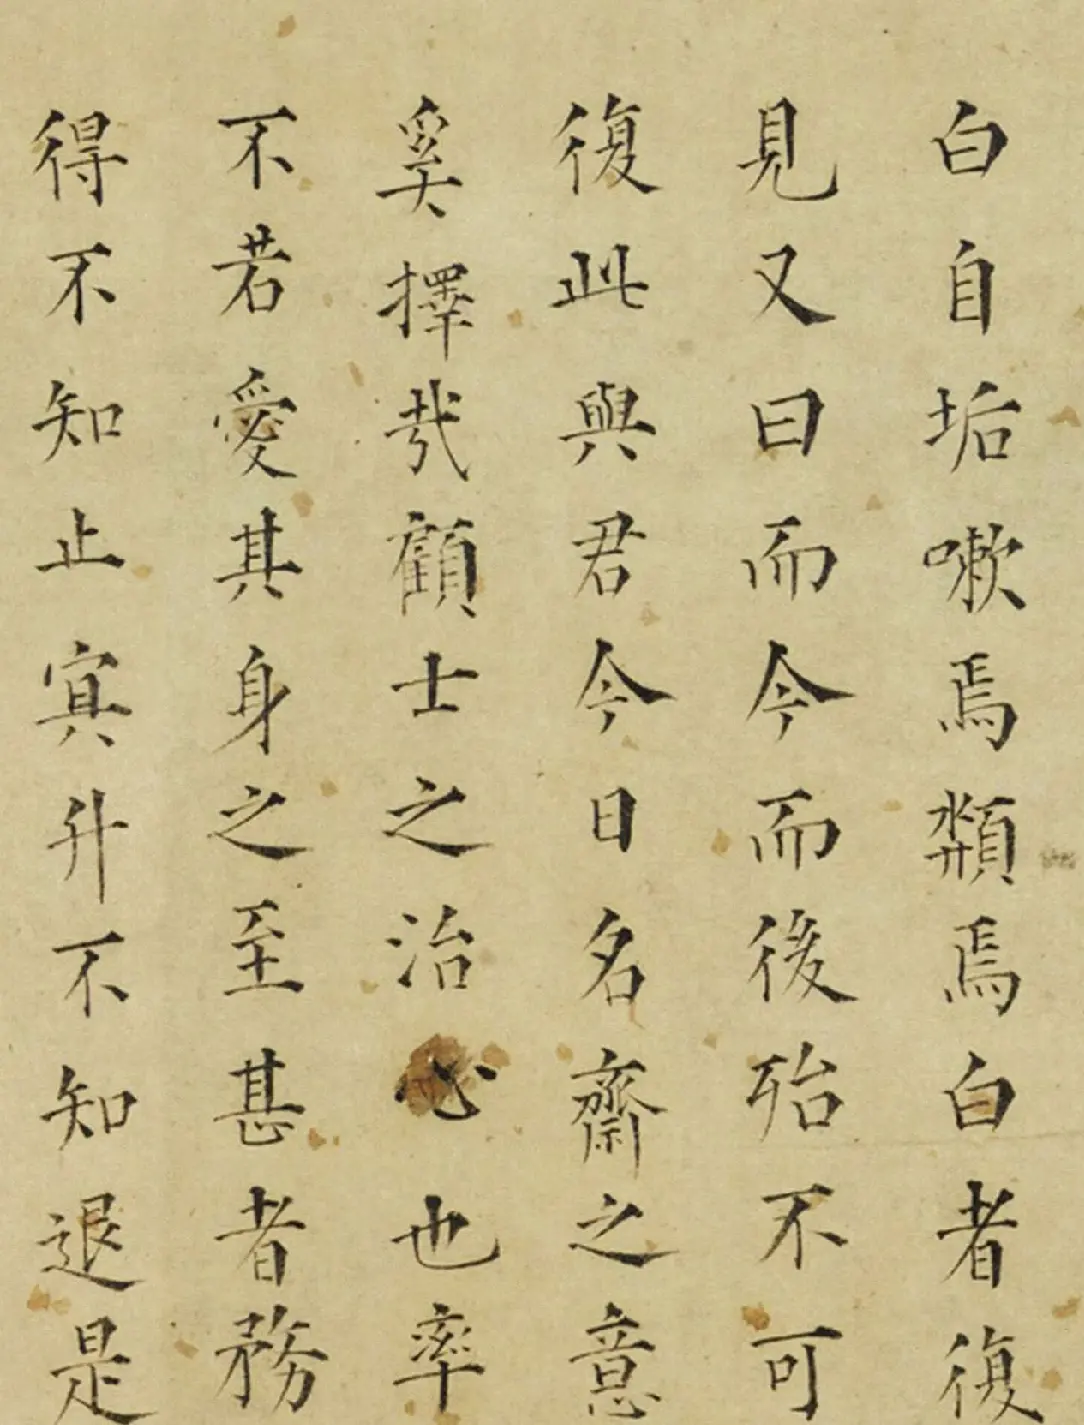 白自垢嗽焉類焉白者復
見又曰而今而後殆不可
復此與君今日名齋之意
奚擇哉顧士之治心也率
不若愛其身之至甚者務
得不知止冥升不知退是